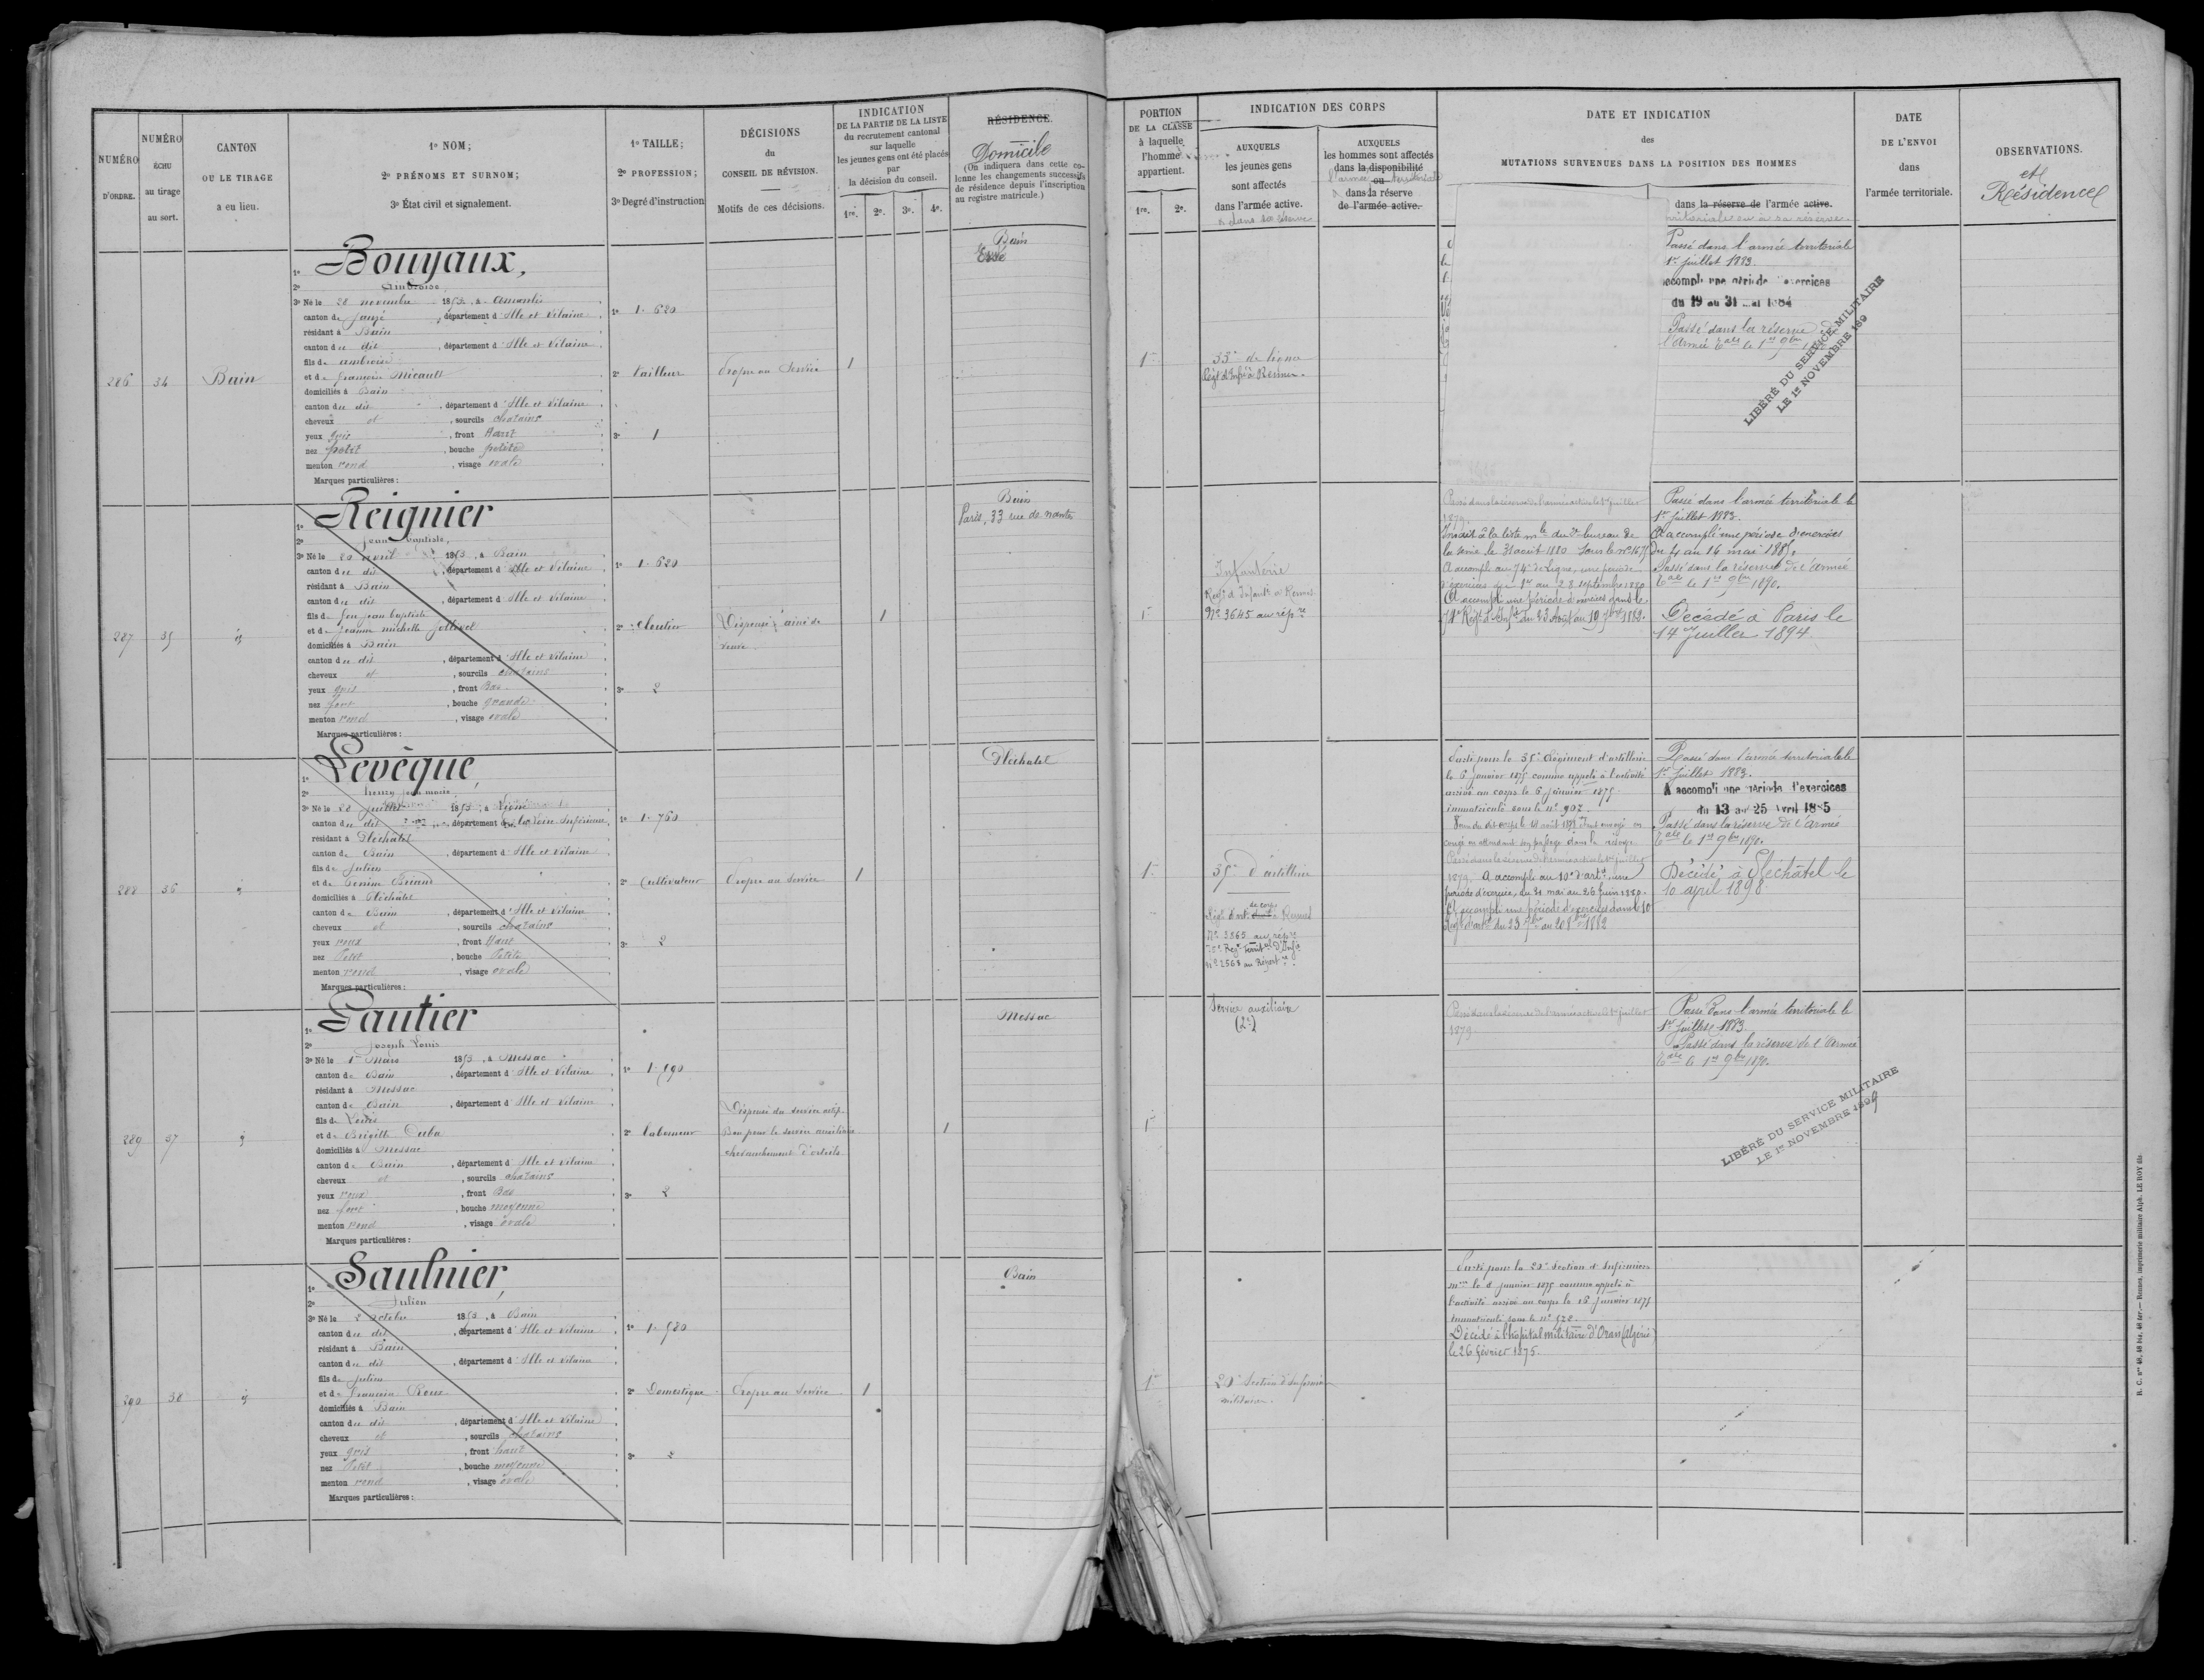 NUMÉRO
D'ORDRE.
NUMÉRO
ÉCHU
au tirage
au sort.
CANTON
OU LE TIRAGE
a eu lieu.
1º NOM;
2º PRÉNOMS ET SURNOM;
3º État civil et signalement.
1º TAILLE;
2º PROFESSION;
3º Degré d'instruction
DÉCISIONS
du
CONSEIL DE RÉVISION.
Motifs de ces décisions.
INDICATION
DE LA PARTIE DE LA LISTE
du recrutement cantonal
sur laquelle
les jeunes gens ont été placés
par
la décision du conseil.
1re. 2e. 3e. 4e.
RÉSIDENCE.
Domicile
(On indiquera dans cette co-
lonne les changements successifs
de résidence depuis l'inscription
au registre matricule.)
PORTION
DE LA CLASSE
à laquelle
l'homme
appartient.
1re. 2e.
INDICATION DES CORPS
AUXQUELS
les jeunes gens
sont affectés
dans l'armée active.
& dans sa réserve
AUXQUELS
les hommes sont affectés
dans la disponibilité
ou
l'armée territoriale
dans la réserve
de l'armée active.
DATE ET INDICATION
des
MUTATIONS SURVENUES DANS LA POSITION DES HOMMES
dans la réserve de l'armée active.
territoriale ou à sa réserve
DATE
DE L'ENVOI
dans
l'armée territoriale.
OBSERVATIONS.
et
Résidence
286
34
Bain
1º Bouyaux,
2º Ambroise,
3º Né le 28 novembre 1853, à Amanlis
canton de Janzé, département d'Ille et Vilaine
résidant à Bain
canton du dit, département d'Ille et Vilaine
fils de ambroise
et de françoise Micault
domiciliés à Bain
canton du dit, département d'Ille et Vilaine
cheveux et, sourcils chatains
yeux gris, front haut
nez petit, bouche petite
menton rond, visage ovale
Marques particulières:
1º 1.620
2º tailleur
3º 1
Propre au Service
1
Bain
Essé
1re
33e de ligne
Régt d'Infie à Rennes.
Passé dans l'armée territoriale
1er juillet 1883.
accompli une période d'exercices
du 19 au 31 mai 1884
Passé dans la réserve de
l'Armée tale le 1er 9bre
LIBÉRÉ DU SERVICE MILITAIRE
LE 1er NOVEMBRE 189
287
35
id
1º Reignier
2º jean baptiste,
3º Né le 20 avril 1853, à Bain
canton du dit, département d'Ille et Vilaine
résidant à Bain
canton du dit, département d'Ille et Vilaine
fils de feu jean baptiste
et de jeanne michelle Jollivel
domiciliés à Bain
canton du dit, département d'Ille et Vilaine
cheveux et, sourcils chatains
yeux gris, front Bas
nez fort, bouche grande
menton rond, visage ovale
Marques particulières:
1º 1.620
2º Cloutier
3º 2
Dispensé aîné de
veuve
1
Bain
Paris, 33 rue de nantes
1re
Infanterie
Régt d'Infantie à Rennes
No 3645 au répre
Passé dans la réserve de l'armée active le 1er juillet
1879.
Inscrit à la liste mle du 2e bureau de
la Seine le 31 août 1880 sous le no 1675
A accompli au 74e de Ligne, une période
d'exercices du 1er au 28 septembre 1880
A accompli une période d'exercices dans le
74e Régt d'Infie du 23 Août au 19 7bre 1882.
Passé dans l'armée territoriale le
1er juillet 1883.
A accompli une période d'exercices
du 4 au 16 mai 1885.
Passé dans la réserve de l'armée
tale le 1er 9bre 1890.
Décédé à Paris le
14 Juillet 1894
288
36
id
1º Levêque,
2º henry jean marie,
3º Né le 28 juillet 1853, à
canton du dit, département de la Loire-Inférieure,
résidant à Pléchâtel
canton de Bain, département d'Ille et Vilaine
fils de Julien
et de Briand
domiciliés à Pléchâtel
canton de Bain, département d'Ille et Vilaine
cheveux et, sourcils chatains
yeux roux, front haut
nez Petit, bouche Petite
menton rond, visage ovale
Marques particulières:
1º 1.760
2º Cultivateur
3º 2
Propre au service
1
Pléchatel
1re
35e d'artillerie
Régt d'art. de corps à Rennes
No 3365 au répre
75e Régt Territal d'Infie
No 2568 au Répertre
Parti pour le 35e Régiment d'artillerie
le 6 janvier 1875 comme appelé à l'activité
arrivé au corps le 6 janvier 1875
immatriculé sous le no 907.
congé en attendant son passage dans la réserve
Passé dans la réserve de l'armée active le 1er juillet
1879. A accompli au 10e d'artie une
période d'exercice, du 31 mai au 26 juin 1880.
A accompli une période d'exercices dans le 10e
Régt d'artie du 23 7bre au 20 8bre 1882
Passé dans l'armée territoriale le
1er juillet 1883.
A accompli une période d'exercices
du 13 au 25 Avril 1885
Passé dans la réserve de l'armée
tale le 1er 9bre 1890.
Décédé à Pléchâtel le
10 april 1898
289
37
id
1º Gautier
2º Joseph Louis
3º Né le 1er Mars 1853, à Messac
canton de Bain, département d'Ille et Vilaine
résidant à Messac
canton de Bain, département d'Ille et Vilaine
fils de Louis
et de Brigitte Duba
domiciliés à Messac
canton de Bain, département d'Ille et Vilaine
cheveux et, sourcils chatains
yeux roux, front Bas
nez fort, bouche moyenne
menton rond, visage ovale
Marques particulières:
1º 1.590
2º laboureur
3º 2
Dispensé du service actif
Bon pour le service auxiliaire
chevauchement d'orteils
1
Messac
1re
Service auxiliaire
(2e)
Passé dans la réserve de l'armée active le 1er juillet
1879.
Passé dans l'armée territoriale le
1er juillet 1883
Passé dans la réserve de l'armée
tale le 1er 9bre 1890.
LIBÉRÉ DU SERVICE MILITAIRE
LE 1er NOVEMBRE 1899
290
38
id
1º Saulnier,
2º Julien
3º Né le 2 octobre 1853, à Bain
canton du dit, département d'Ille et Vilaine
résidant à Bain
canton du dit, département d'Ille et Vilaine
fils de Julien
et de françoise Roux
domiciliés à Bain
canton du dit, département d'Ille et Vilaine
cheveux et, sourcils chatains
yeux gris, front haut
nez Petit, bouche moyenne
menton rond, visage ovale
Marques particulières:
1º 1.580
2º Domestique
3º 2
Propre au service
1
Bain
1re
20e Section d'Infirmiers
militaires.
Parti pour la 20e Section d'Infirmiers
mres le 8 janvier 1875 comme appelé à
l'activité arrivé au corps le 16 janvier 1875
immatriculé sous le no 528.
Décédé à l'hôpital militaire d'Oran (algérie)
le 26 février 1875.
R. C. nos 48, 48 bis, 48 ter.— Rennes, imprimerie militaire Alph. LE ROY fils.